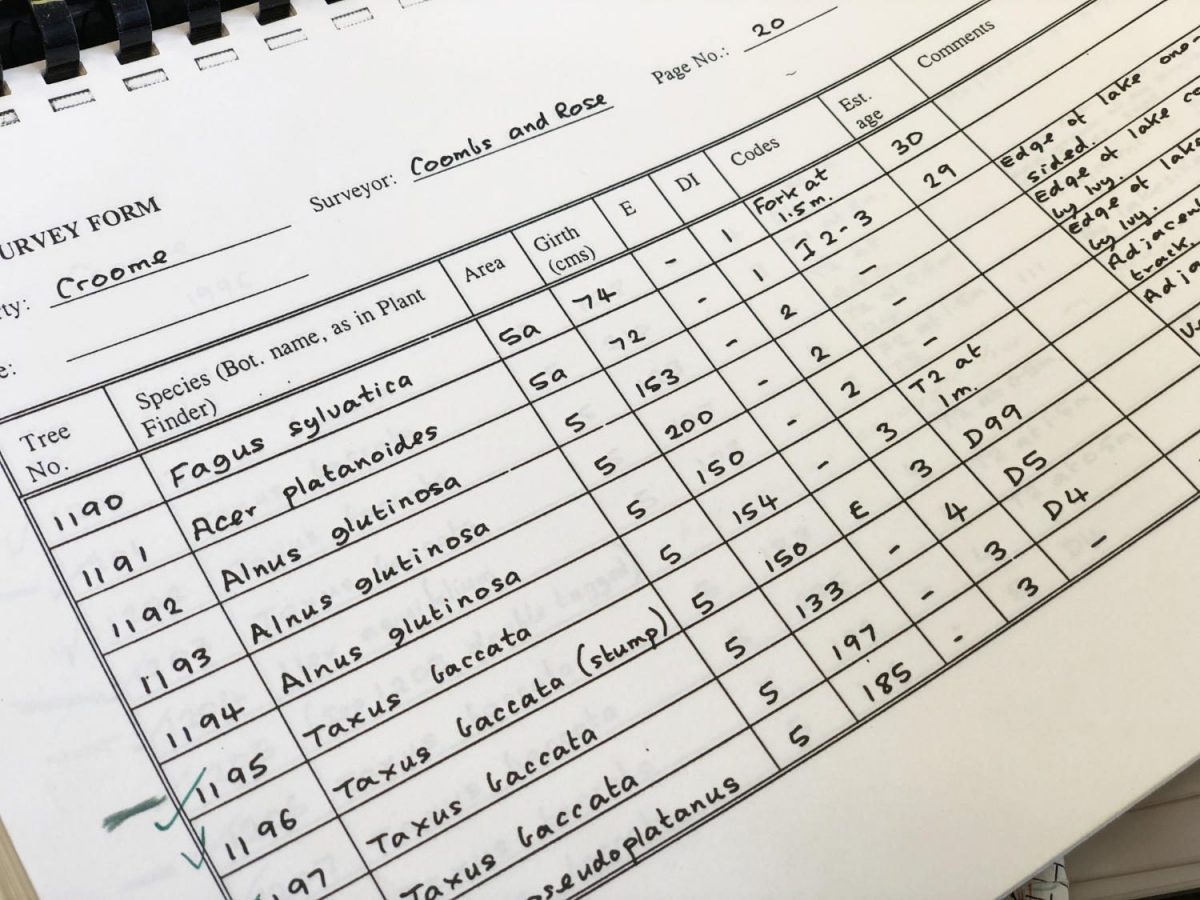 URVEY FORM
Page No.: 20
rty: Croome Surveyor: Coombs and Rose
e:
Tree No. Species (Bot. name, as in Plant Finder) Area Girth (cms) E DI Codes Est. age Comments
1190 Fagus sylvatica 5a 74 - 1 Fork at 1.5m. 30 Edge of lake one-sided.
1191 Acer platanoides 5a 72 - 1 I2-3 29 Edge of lake co by Ivy.
1192 Alnus glutinosa 5 153 - 2 - Edge of lake by Ivy.
1193 Alnus glutinosa 5 200 - 2 - Adjacent track.
1194 Alnus glutinosa 5 150 - 2 - Adja
1195 Taxus baccata 5 154 - 3 T2 at 1m.
1196 Taxus baccata (stump) 5 150 E 3 D99
1197 Taxus baccata 5 133 - 4 D5
Taxus baccata 5 197 - 3 D4
pseudoplatanus 5 185 - 3 -